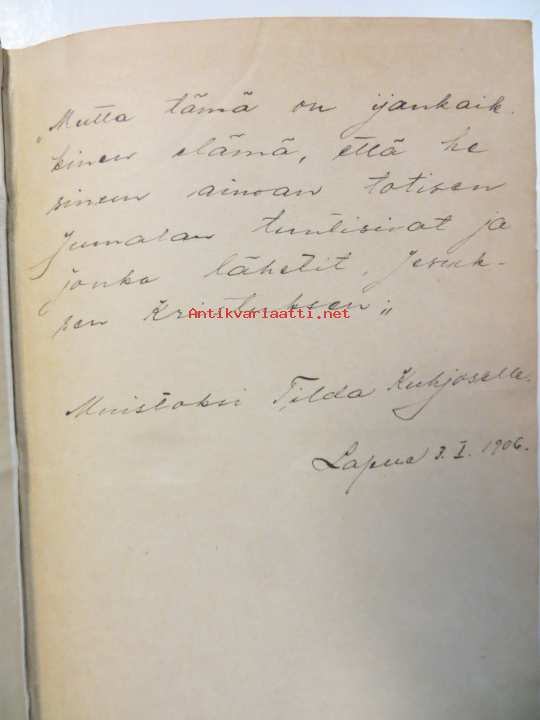 „Mutta tämä on ijankaik-
kinen elämä, että he
sinun ainoan totisen
Jumalan tuntisivat ja
jonka lähetit, Jesuk-
sen Kristuksen„
Antikvariaatti.net
Muistoksi Tilda Kuhjoselle.
Lapua 3. I. 1906.